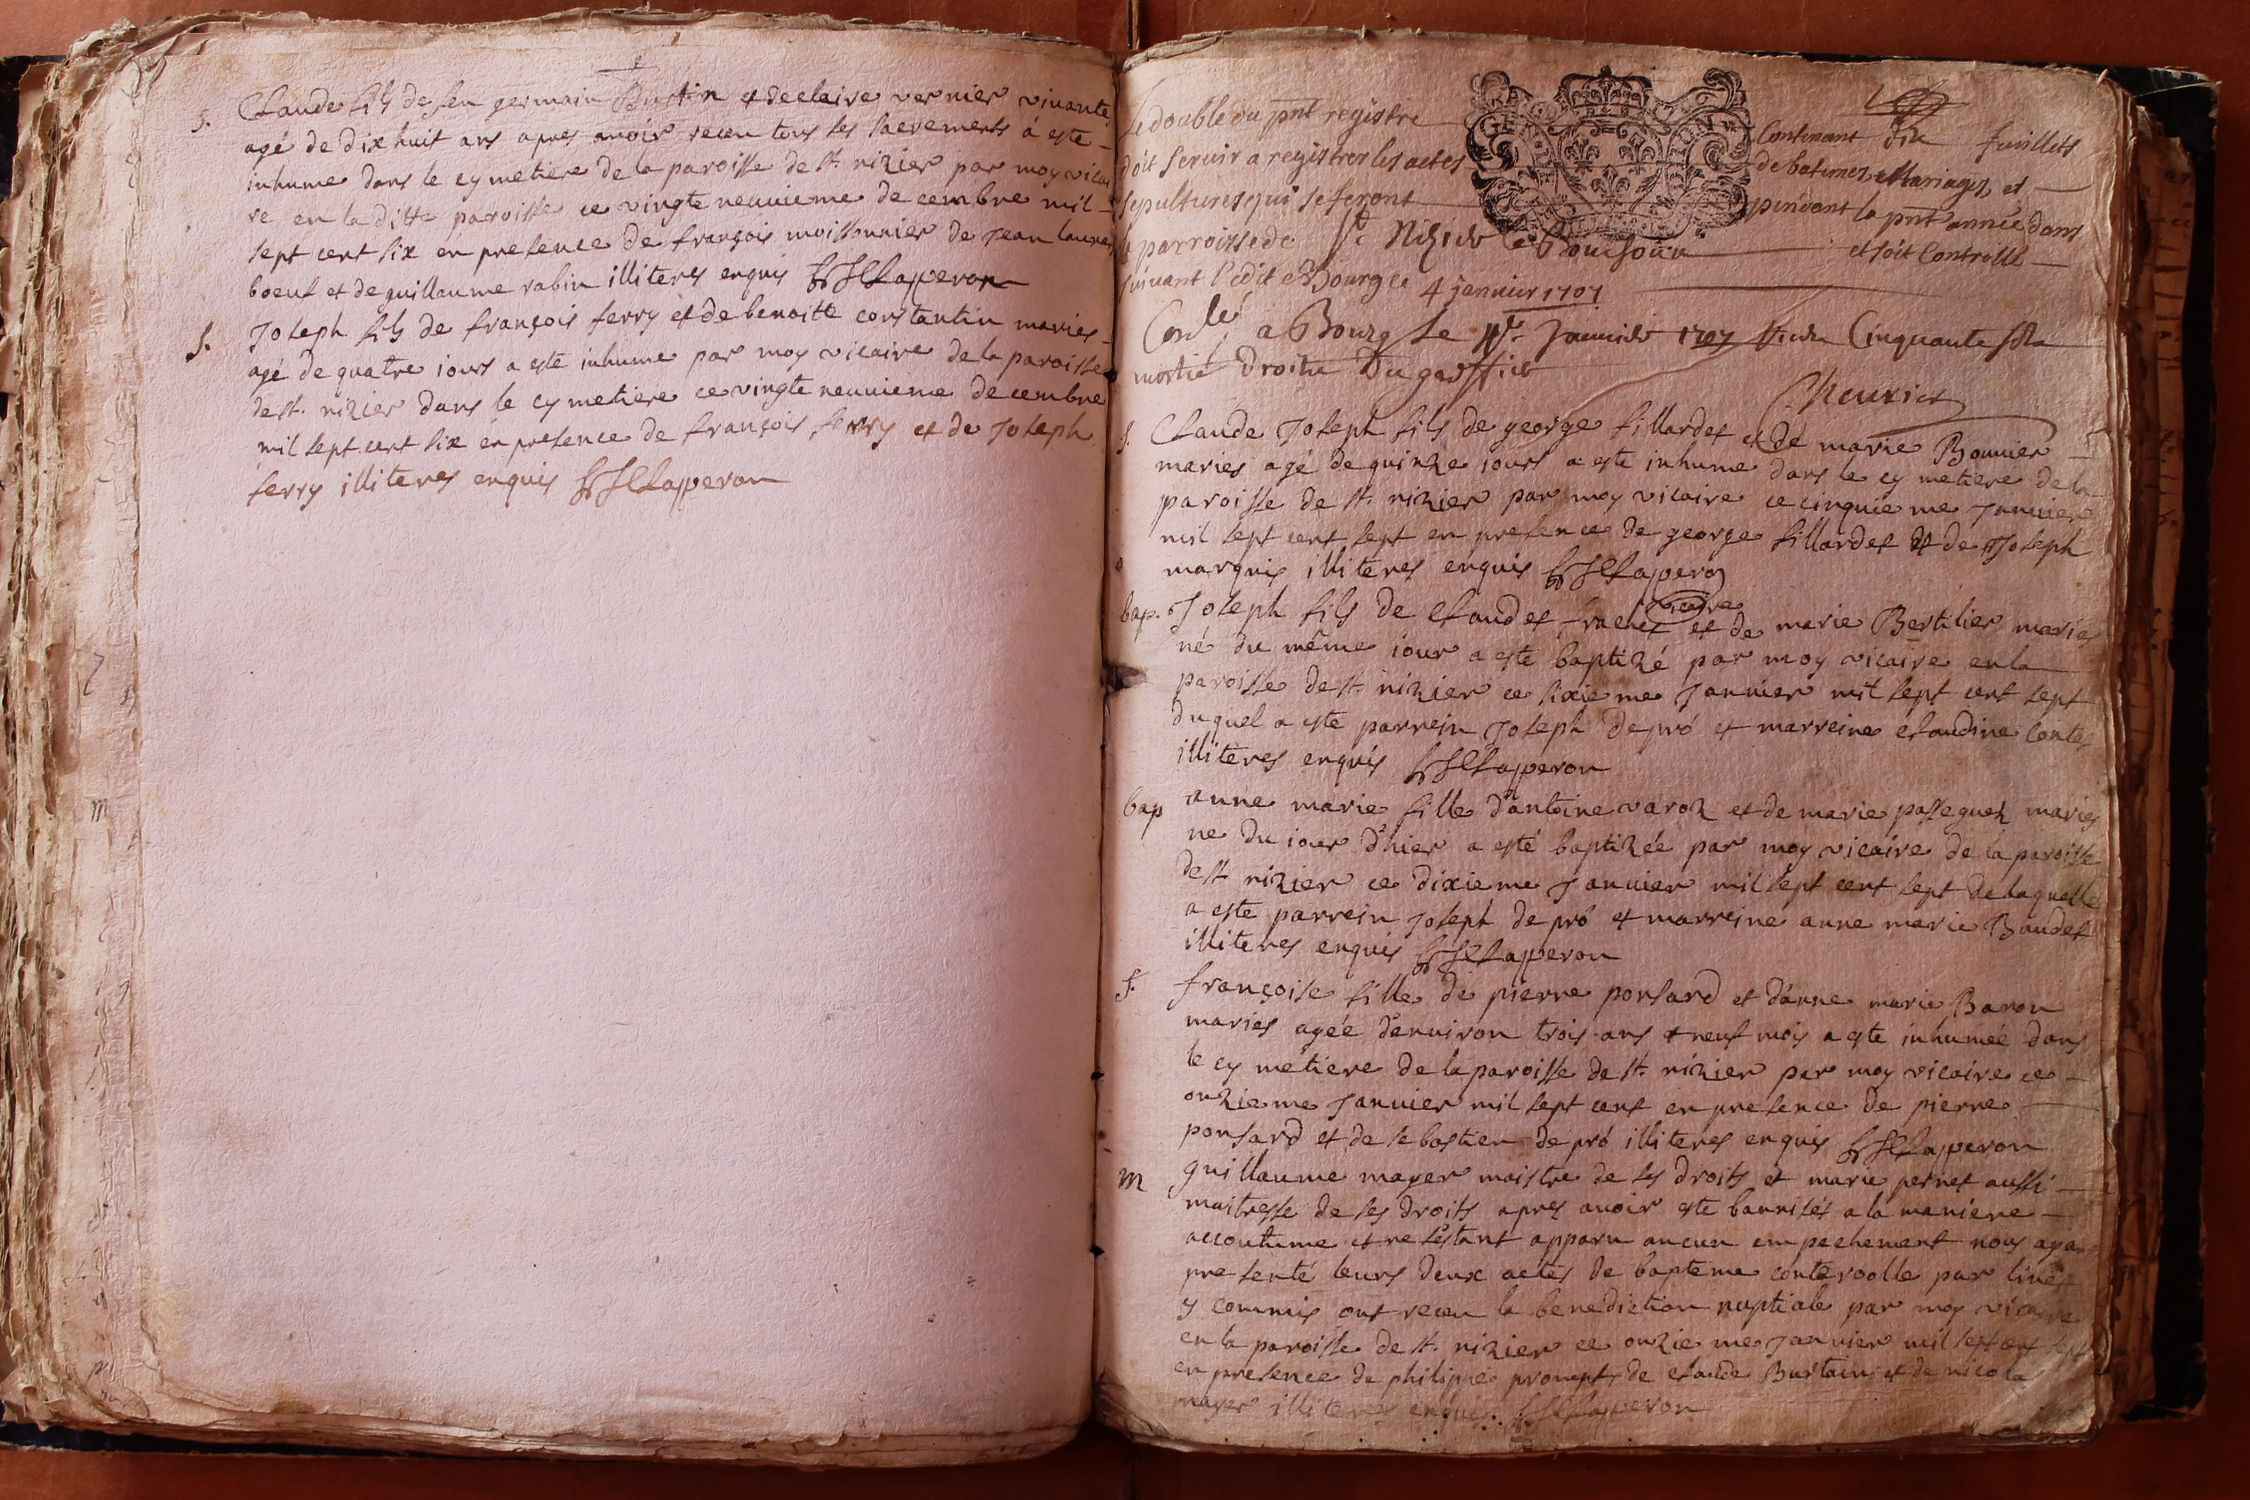 s. Claude fils de feu germain Bustin et declaire vernier vivante
agé de dix huit ans apres avoir receu tous les sacrements à este
inhume dans le cymetiere de la paroisse de st. nizier par moy vicai
re en la ditte paroisse ce vingte neuvieme decembre mil
sept cent six en presence de françois moissonnier de Jean
boeuf et de guillaume rabin illiteres enquis Clapperon
s. Joseph fils de françois ferry et de benoitte constantin maries
agé de quatre iours a este inhume par moy vicaire de la paroisse
de st. nizier dans le cymetiere ce vingte neuvieme decembre
mil sept cent six en presence de françois ferry et de Joseph
ferry illiteres enquis Clapperon
Le double du pnt registre Contenant dix fuillets
doit servir a registrer les actes de batemes Mariages et
sepultures qui se feront pendant la pnt année dans
la parroisse de St Nizier Le Bouchoux et soit Controllé
suivant l'edit a Bourg ce 4 janvier 1707
Conlé a Bourg Le Janvier 1707 Cinquante
moitié Droitu Du greffier
Cheurier
s. Claude Joseph fils de george fillardet et de marie Bouvier
maries agé de quinze iours a este inhume dans le cymetiere de la
paroisse de st. nizier par moy vicaire ce cinquieme Janvier
mil sept cent sept en presence de george fillardet et de Joseph
marquis illiteres enquis Clapperon
vicaire
bap. Joseph fils de Claudet et de marie Bertilier maries
né du même iour a este baptizé par moy vicaire en la
paroisse de st. nizier ce sixieme Janvier mil sept cent sept
duquel a este parrein Joseph depró et marreine Claudine Conte
illiteres enquis Clapperon
bap anne marie fille d'antoine varoz et de marie passeguez maries
ne du iour d'hier a esté baptizée par moy vicaire de la paroisse
de st. nizier ce dixieme Janvier mil sept cent sept de laquelle
a este parrein Joseph de pró et marreine anne marie Baudet
illiteres enquis Clapperon
s. françoise fille de pierre ponsard et d'anne marie Baron
maries agée d'environ trois ans et neuf mois a este inhumée dans
le cymetiere de la paroisse de st. nizier par moy vicaire ce
onzieme Janvier mil sept cent en presence de pierre
ponsard et de sebastien de pró illiteres enquis Clapperon
m guillaume mayer maistre de ses droits et marie pernet aussi
maitresse de ses droits apres avoir este bannisés a la maniere
accoutume et ne s'estant apparu aucun empechement nous ayant
presenté leurs deux actes de bapteme conterolle par
y commis ont receu la benediction nuptiale par moy vicaire
en la paroisse de st. nizier ce onzieme Janvier mil sept cent sept
en presence de philippe prompt de claude Bustain et de nicola
mayer illiteres enquis Clapperon